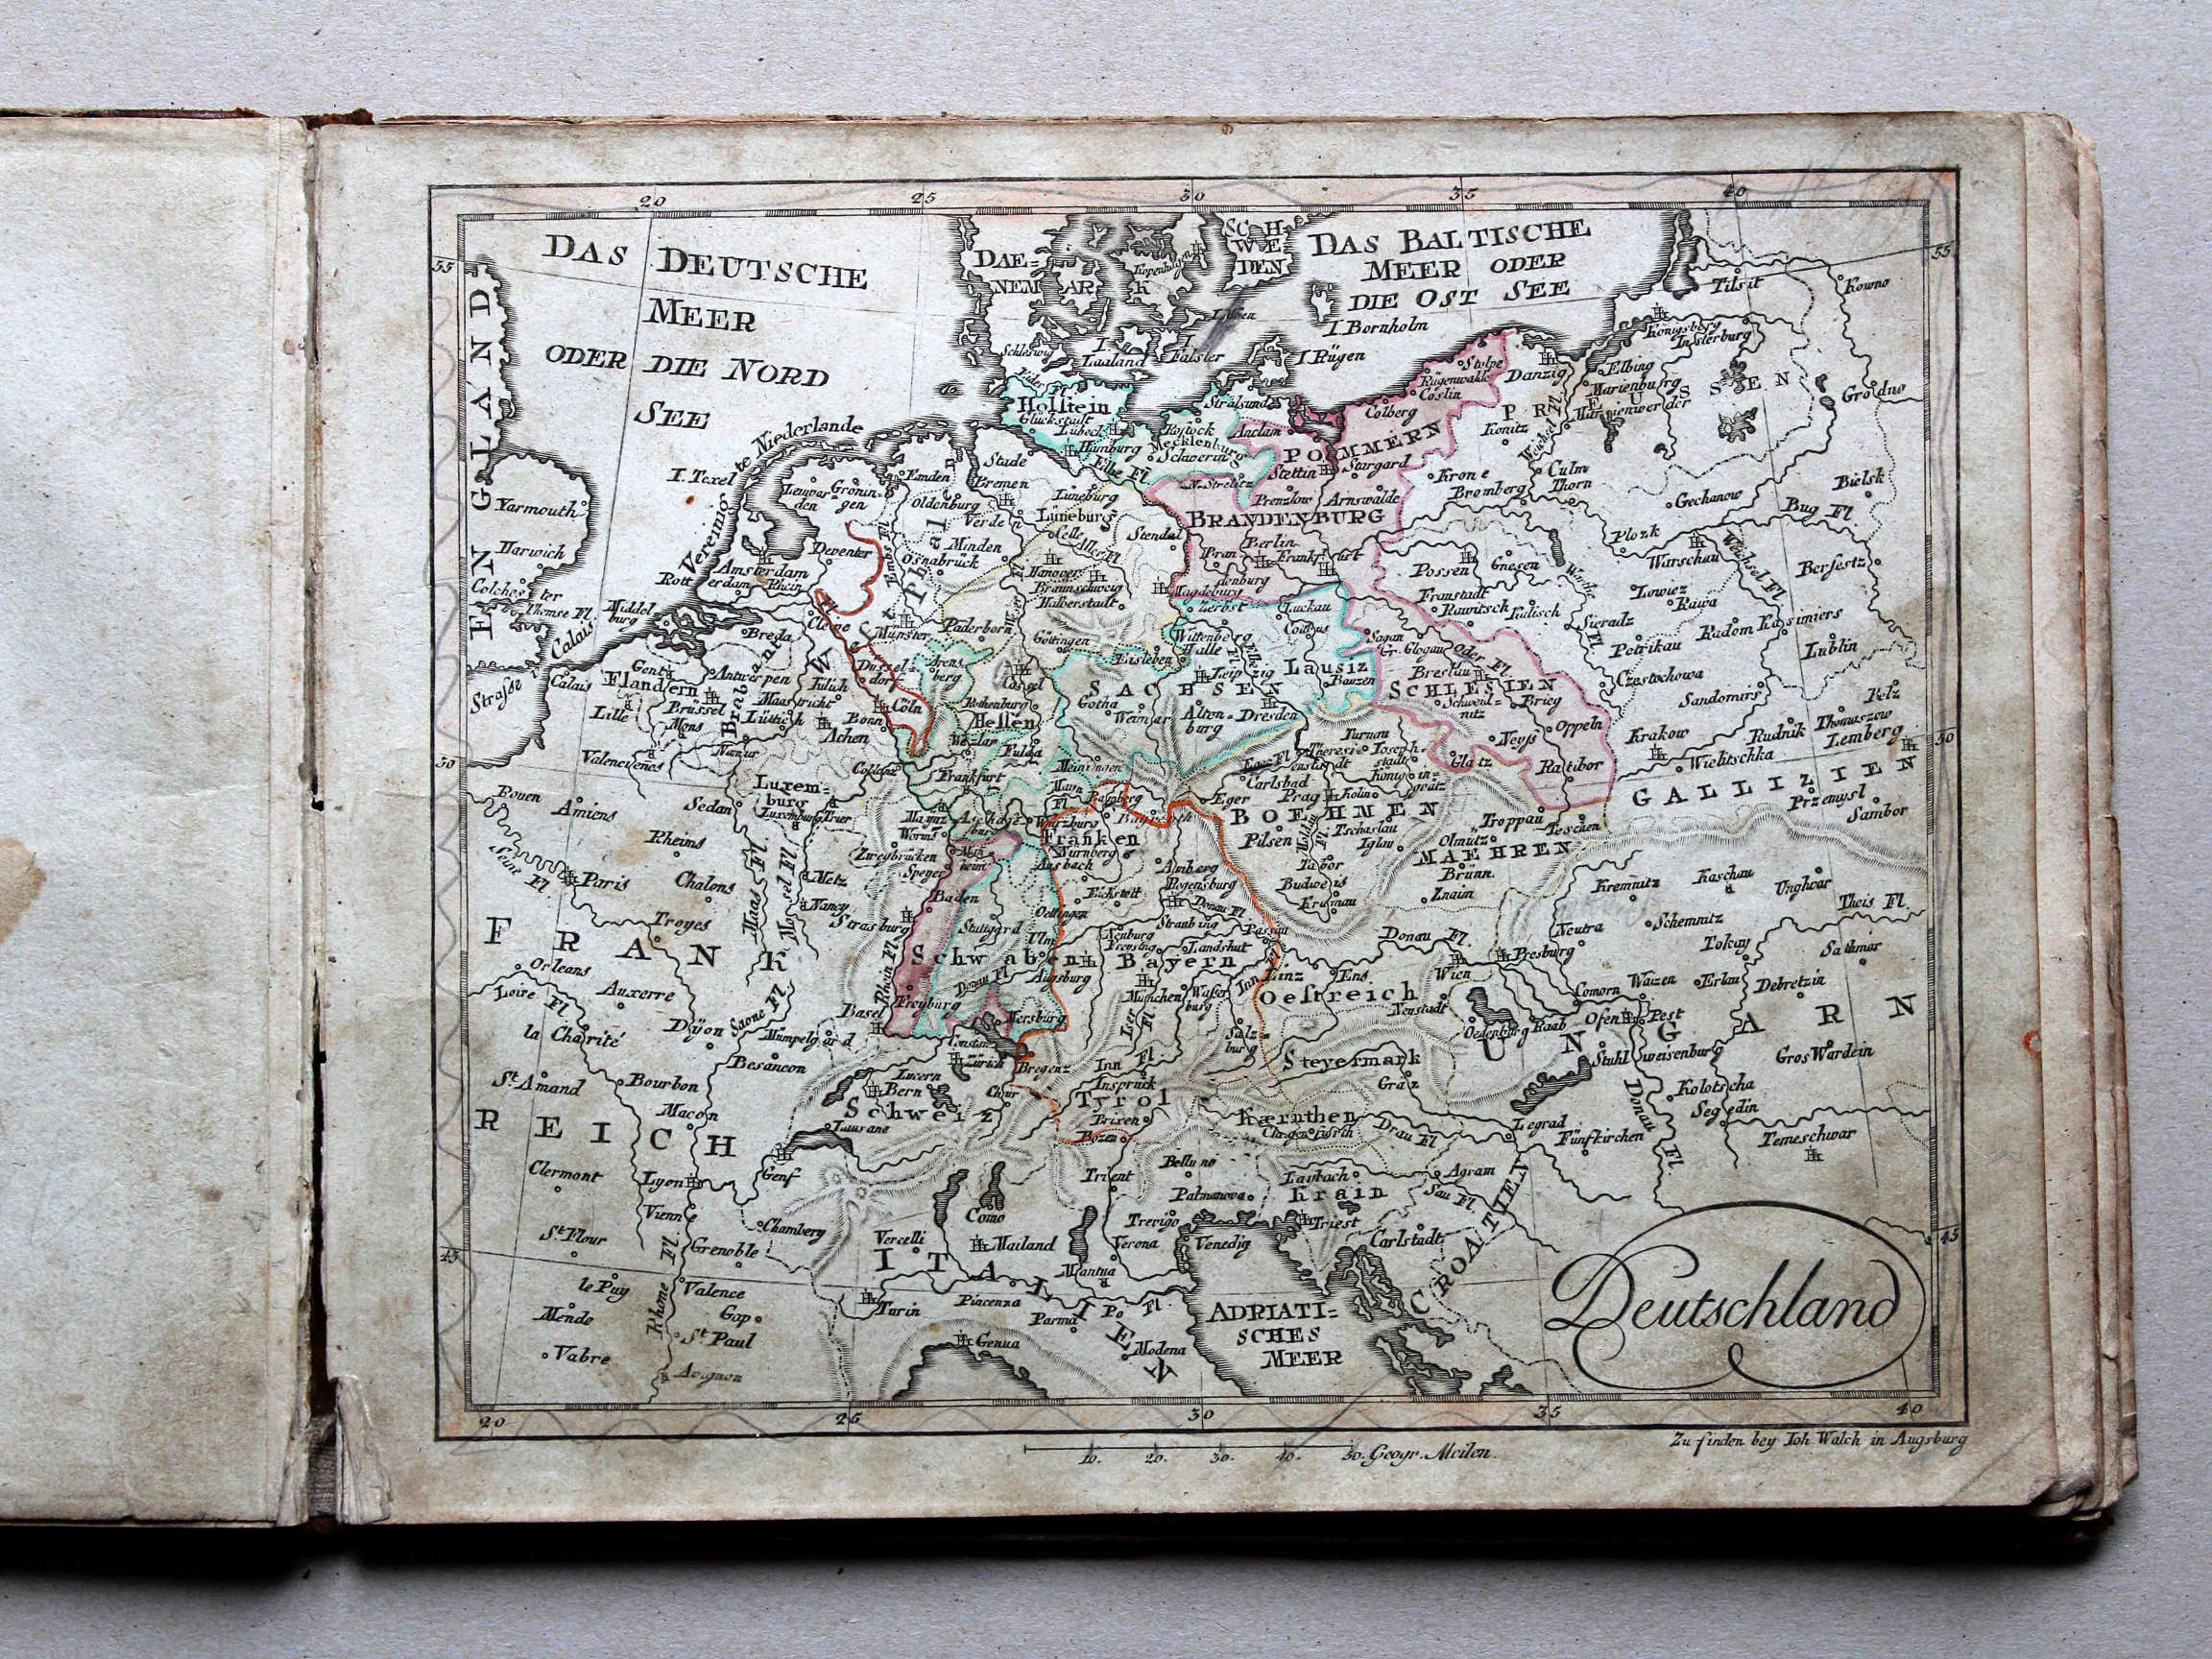 20 25 30 35 40
DAS DEUTSCHE
MEER
ODER DIE NORD
SEE
DAE=
NEM AR K
Kopenhagen
SCH=
WE=
DEN
DAS BALTISCHE
MEER ODER
DIE OST SEE
55
55
I. Bornholm
I. Rügen
I. Laaland
I. Falster
Schleswig
Eider Fl.
Tilsit
Kowno
Königsberg
Insterburg
Elbing
Marienburg
Marienwerder
PREUSSEN
Grodno
Danzig
Stolpe
Rügenwalde
Cöslin
Colberg
Konitz
Weichsel Fl.
ENGLAND
Yarmouth
Harwich
Colchester
Themse Fl.
Strasse
Calais
Vereinigte Niederlande
I. Texel
Leuwar=
den
Grönin=
gen
Emden
Deventer
Amsterdam
Rotterdam
Rhein
Middel
burg
Breda
Cleve
Holstein
Glückstadt
Lübeck
Hamburg
Elbe Fl.
Stade
Bremen
Oldenburg
Verden
Lüneburg
Lüneburg
Celle
Aller Fl.
Stendal
Minden
Osnabrück
Hanover
Braunschweig
Halberstadt
Magdeburg
Ems Fl.
Westphal
Münster
Paderborn
Göttingen
Rostock
Mecklenburg
Schwerin
Stralsund
Anclam
N. Strelitz
POMMERN
Stettin
Stargard
Prenzlow
Arnswalde
BRANDENBURG
Berlin
Bran
denburg
Frankfurt
Krone
Bromberg
Culm
Thorn
Gechanow
Bielsk
Bug Fl.
Plozk
Warschau
Weichsel Fl.
Bersestz
Possen
Gnesen
Warthe Fl.
Lowicz
Rawa
Fraustadt
Rawitsch
Kalisch
Sieradz
Radom
Kasimiers
Petrikau
Lublin
Czestochowa
Sandomirs
Belz
Zerbst
Luckau
Cottbus
Wittenberg
Halle
Leipzig
Eisleben
Lausiz
Bauzen
Sagan
Gr. Glogau
Oder Fl.
Breslau
SCHLESIEN
Schweid=
nitz
Brieg
Oppeln
Neyss
Glatz
Ratibor
Krakow
Rudnik
Thomaszow
Lemberg
Wielitschka
GALLIZIEN
Przemysl
Sambor
Calais
Gent
Flandern
Antwerpen
Brabant
Lille
Brüssel
Mons
Maastricht
Lüttich
Namur
Valenciennes
Jülich
Düssel=
dorf
Cöln
Bonn
Achen
Arens
berg
Cassel
Rothenburg
Hessen
Wezlar
Fulda
SACHSEN
Gotha
Weimar
Alten=
burg
Dresden
Meiningen
Coblenz
Frankfurt
50
50
Rouen
Amiens
Sedan
Luxem=
burg
Luxemburg
Trier
Rheims
Seine Fl.
Paris
Chalons
Maas Fl.
Mosel Fl.
Metz
Nancy
Strasburg
Troyes
FRANK
REICH
Orleans
Loire Fl.
Auxerre
la Charité
Dijon
Saone Fl.
Mümpelgard
Besancon
St. Amand
Bourbon
Macon
Clermont
Lyon
Genf
Vienne
Chambery
St. Flour
Grenoble
le Puy
Valence
Mende
Gap
St. Paul
Vabre
Avignon
Rhone Fl.
Maynz
Worms
Aschaf=
burg
Mayn
Fl.
Bamberg
Bayreuth
Würzburg
Franken
Nürnberg
Ansbach
Zweybrücken
Speyer
Man
heim
Baden
Stuttgard
Oettingen
Eichstett
Ulm
Schwaben
Augsburg
Donau Fl.
Rhein Fl.
Freyburg
Mersburg
Basel
Constanz
Zürich
Bregenz
Lucern
Bern
Chur
Schweiz
Lausane
Amberg
Regensburg
Donau Fl.
Straubing
Passau
Neuburg
Freysing
Landshut
Bayern
München
Wasser
burg
Inn
Iser Fl.
Salz=
burg
Inn Fl.
Inspruck
Tyrol
Brixen
Bozen
Eger Fl.
Theresi=
enstadt
Turnau
Joseph=
stadt
Carlsbad
Eger
Prag
Kolin
Königin=
grätz
BOEHMEN
Pilsen
Moldau Fl.
Tschaslau
Iglau
Tabor
Budweis
Krumau
Troppau
Teschen
Olmütz
MAEHREN
Brünn
Znaim
Donau Fl.
Linz
Ens
Wien
Oestreich
Neustadt
Steyermark
Grätz
Kærnthen
Clagenfurth
Drau Fl.
Kremnitz
Kaschau
Unghvar
Theis Fl.
Neutra
Schemnitz
Presburg
Tokay
Sathmar
Comorn
Waizen
Erlau
Debretzin
Oedenburg
Raab
Ofen
Pest
UNGARN
Stuhlweisenburg
Gros Wardein
Kolotscha
Donau Fl.
Segedin
Legrad
Fünfkirchen
Temeschwar
Trient
Belluno
Palmanova
Laybach
Krain
Agram
Sau Fl.
CROATIEN
Carlstadt
Triest
Como
Vercelli
Mailand
Trevigo
Verona
Venedig
Mantua
ITALIEN
Turin
Piacenza
Parma
Po Fl.
Genua
Modena
ADRIATI=
SCHES
MEER
45
45
Deutschland
20 25 30 35 40
10. 20. 30. 40. 50. Geogr. Meilen.
Zu finden bey Joh. Walch in Augsburg